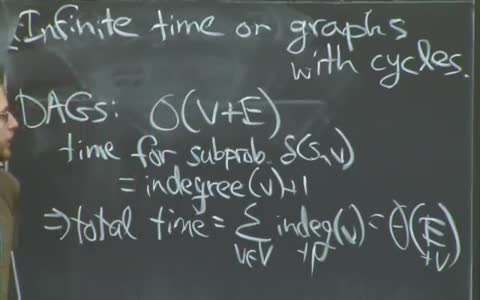 Infinite time or graphs
with cycles.
DAGs: O(V+E)
time for subprob. δ(s,v)
= indegree(v)+1
⇒ total time = Σ indeg(v) = Θ(E
v∈V +1 +V)